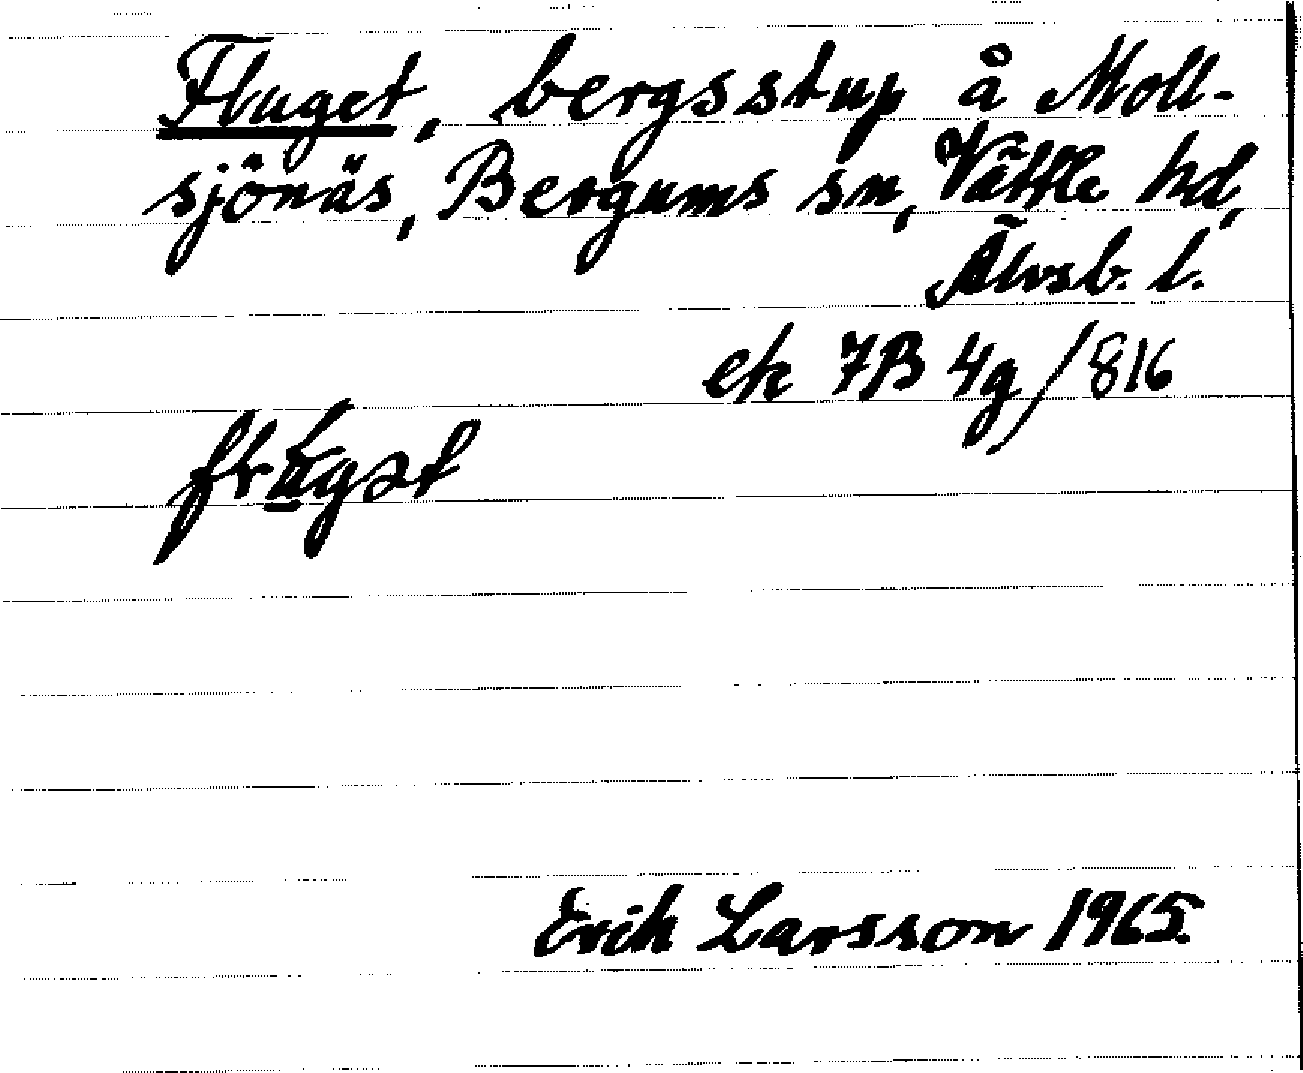 Fluget, bergsstup å Moll-
sjönäs, Bergums sn, Vättle hd,
Älvsb. l.
ek 7B 4g/816
Erik Larsson 1965.